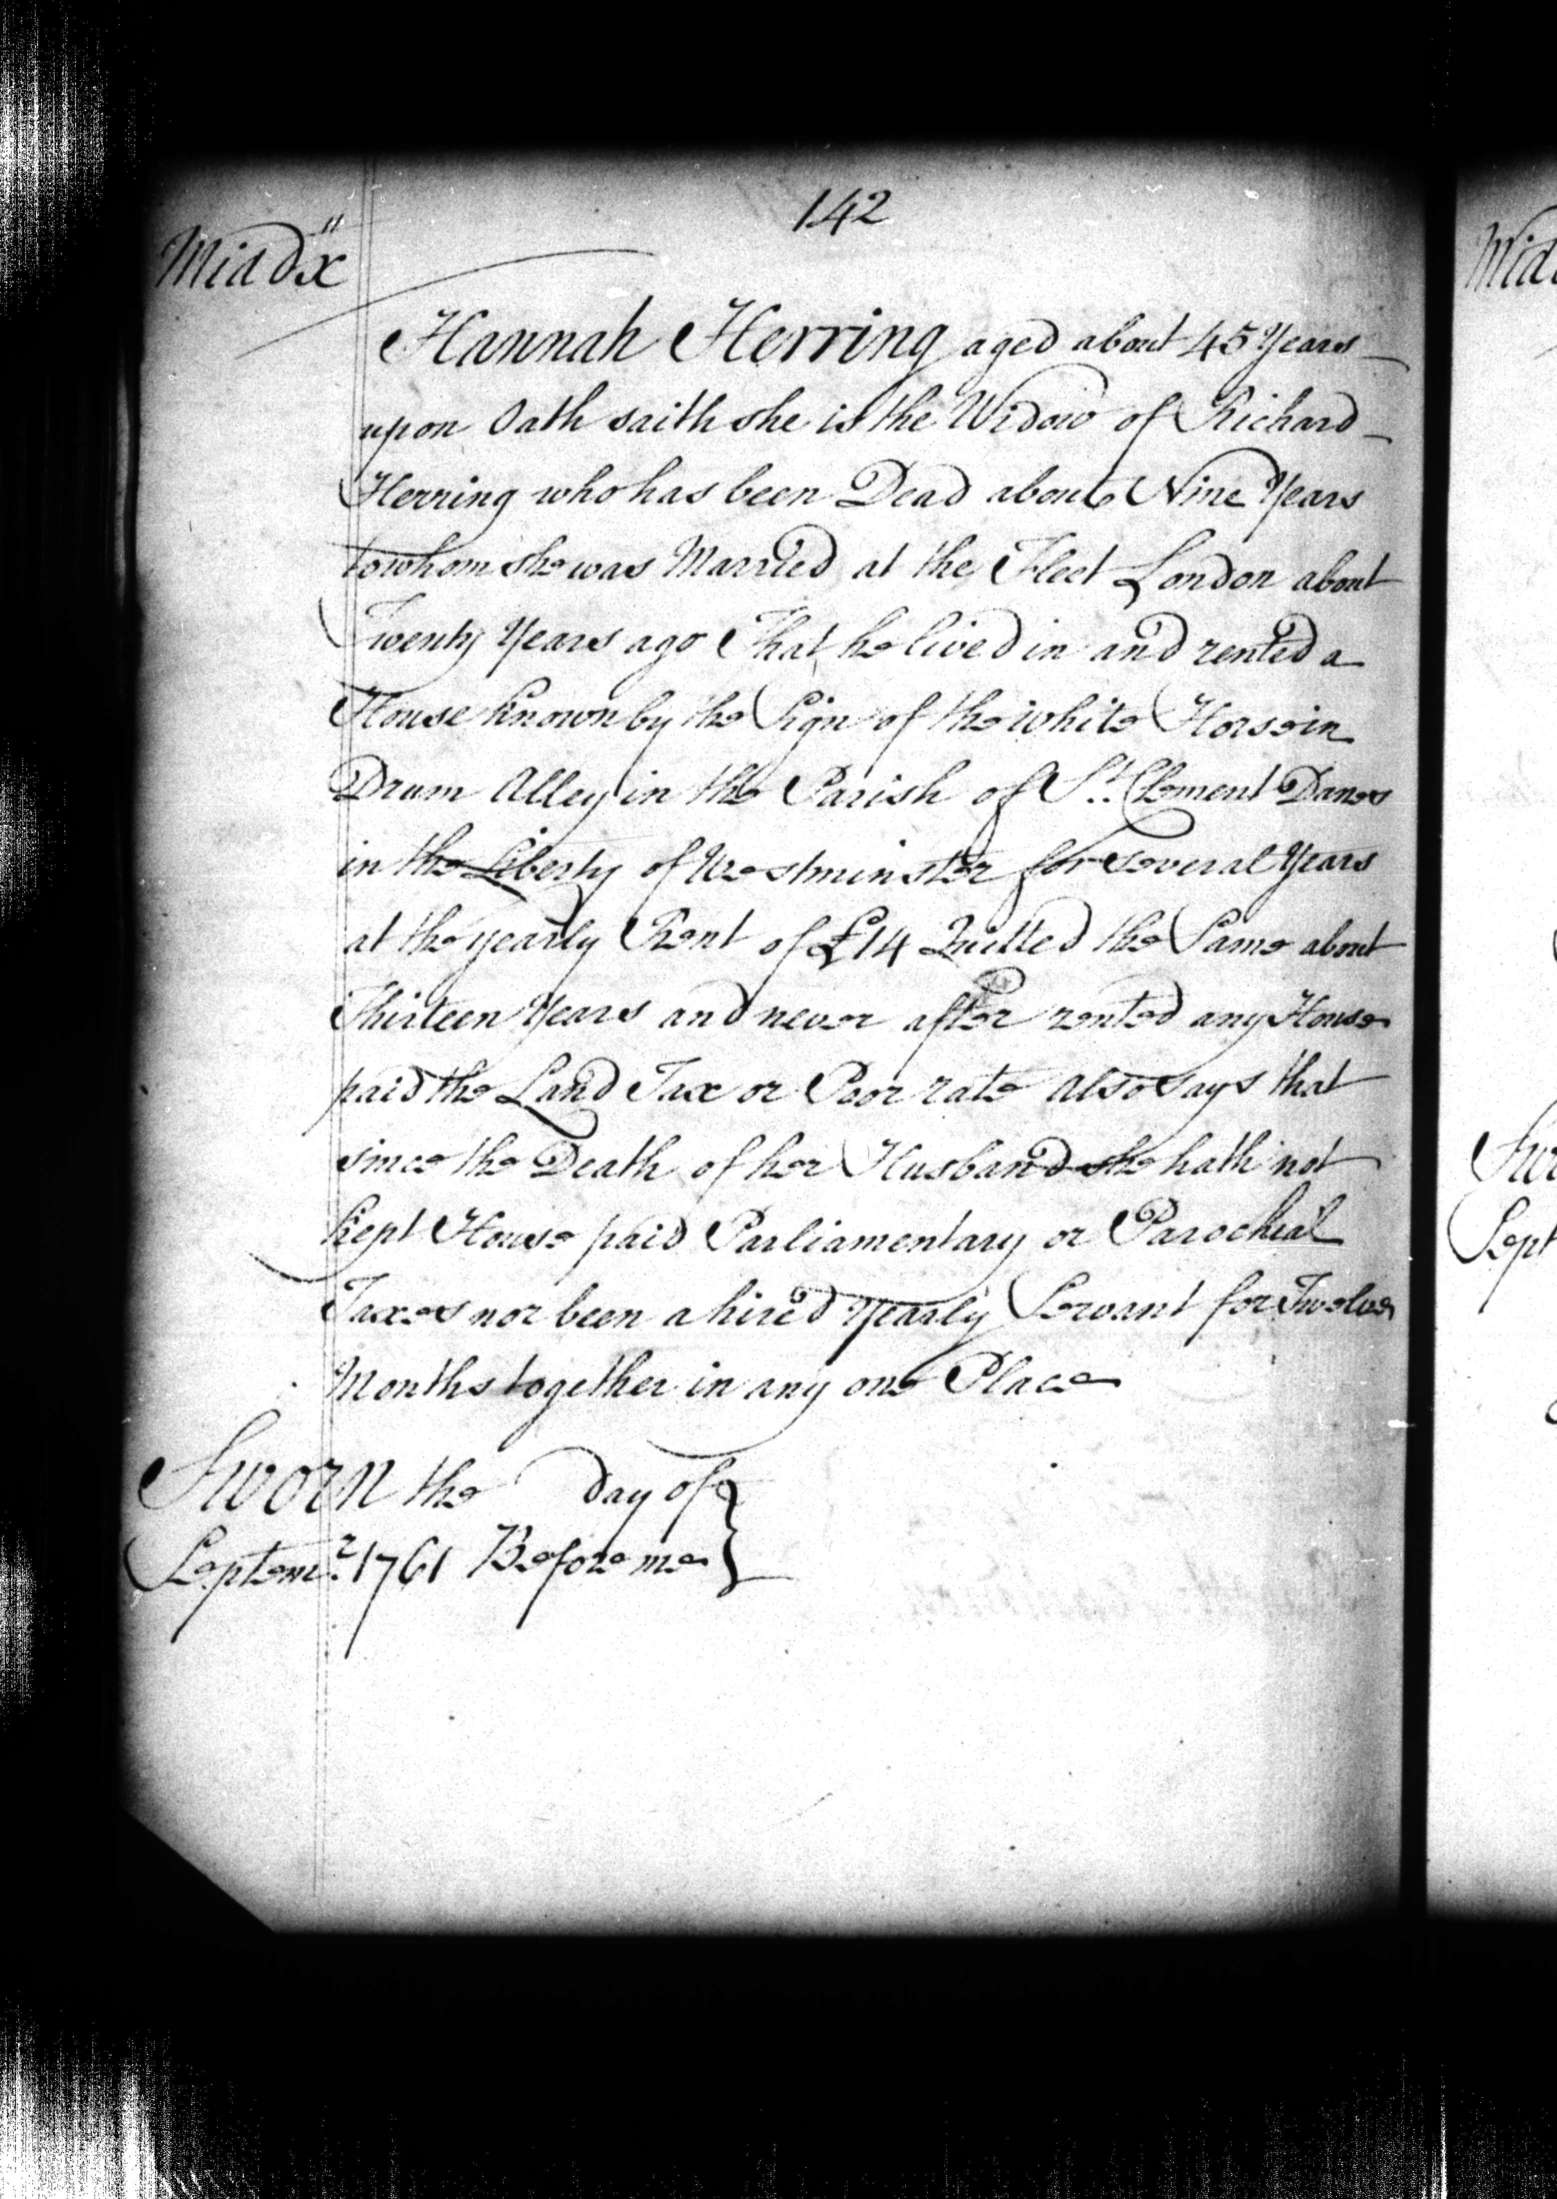 142
Midd"x
Hannah Herring aged about 45 Years
upon Oath saith she is the Widow of Richard
Herring who has been Dead about Nine Years
to whom she was Married at the Fleet London about
Twenty Years ago That he lived in and rented a
House known by the Sign of the white Horse in
Drum Alley in the Parish of St. Clement Danes
in the Liberty of Westminster for several Years
at the yearly Rent of £14 Quitted the Same about
Thirteen Years and never after rented any House
paid the Land Tax or Poor rate also says that
since the Death of her Husband she hath not
kept House paid Parliamentary or Parochial
Taxes nor been a hired Yearly Servant for Twelve
Months together in any one Place
Sworn the day of
Septemr. 1761 Before me
Sept